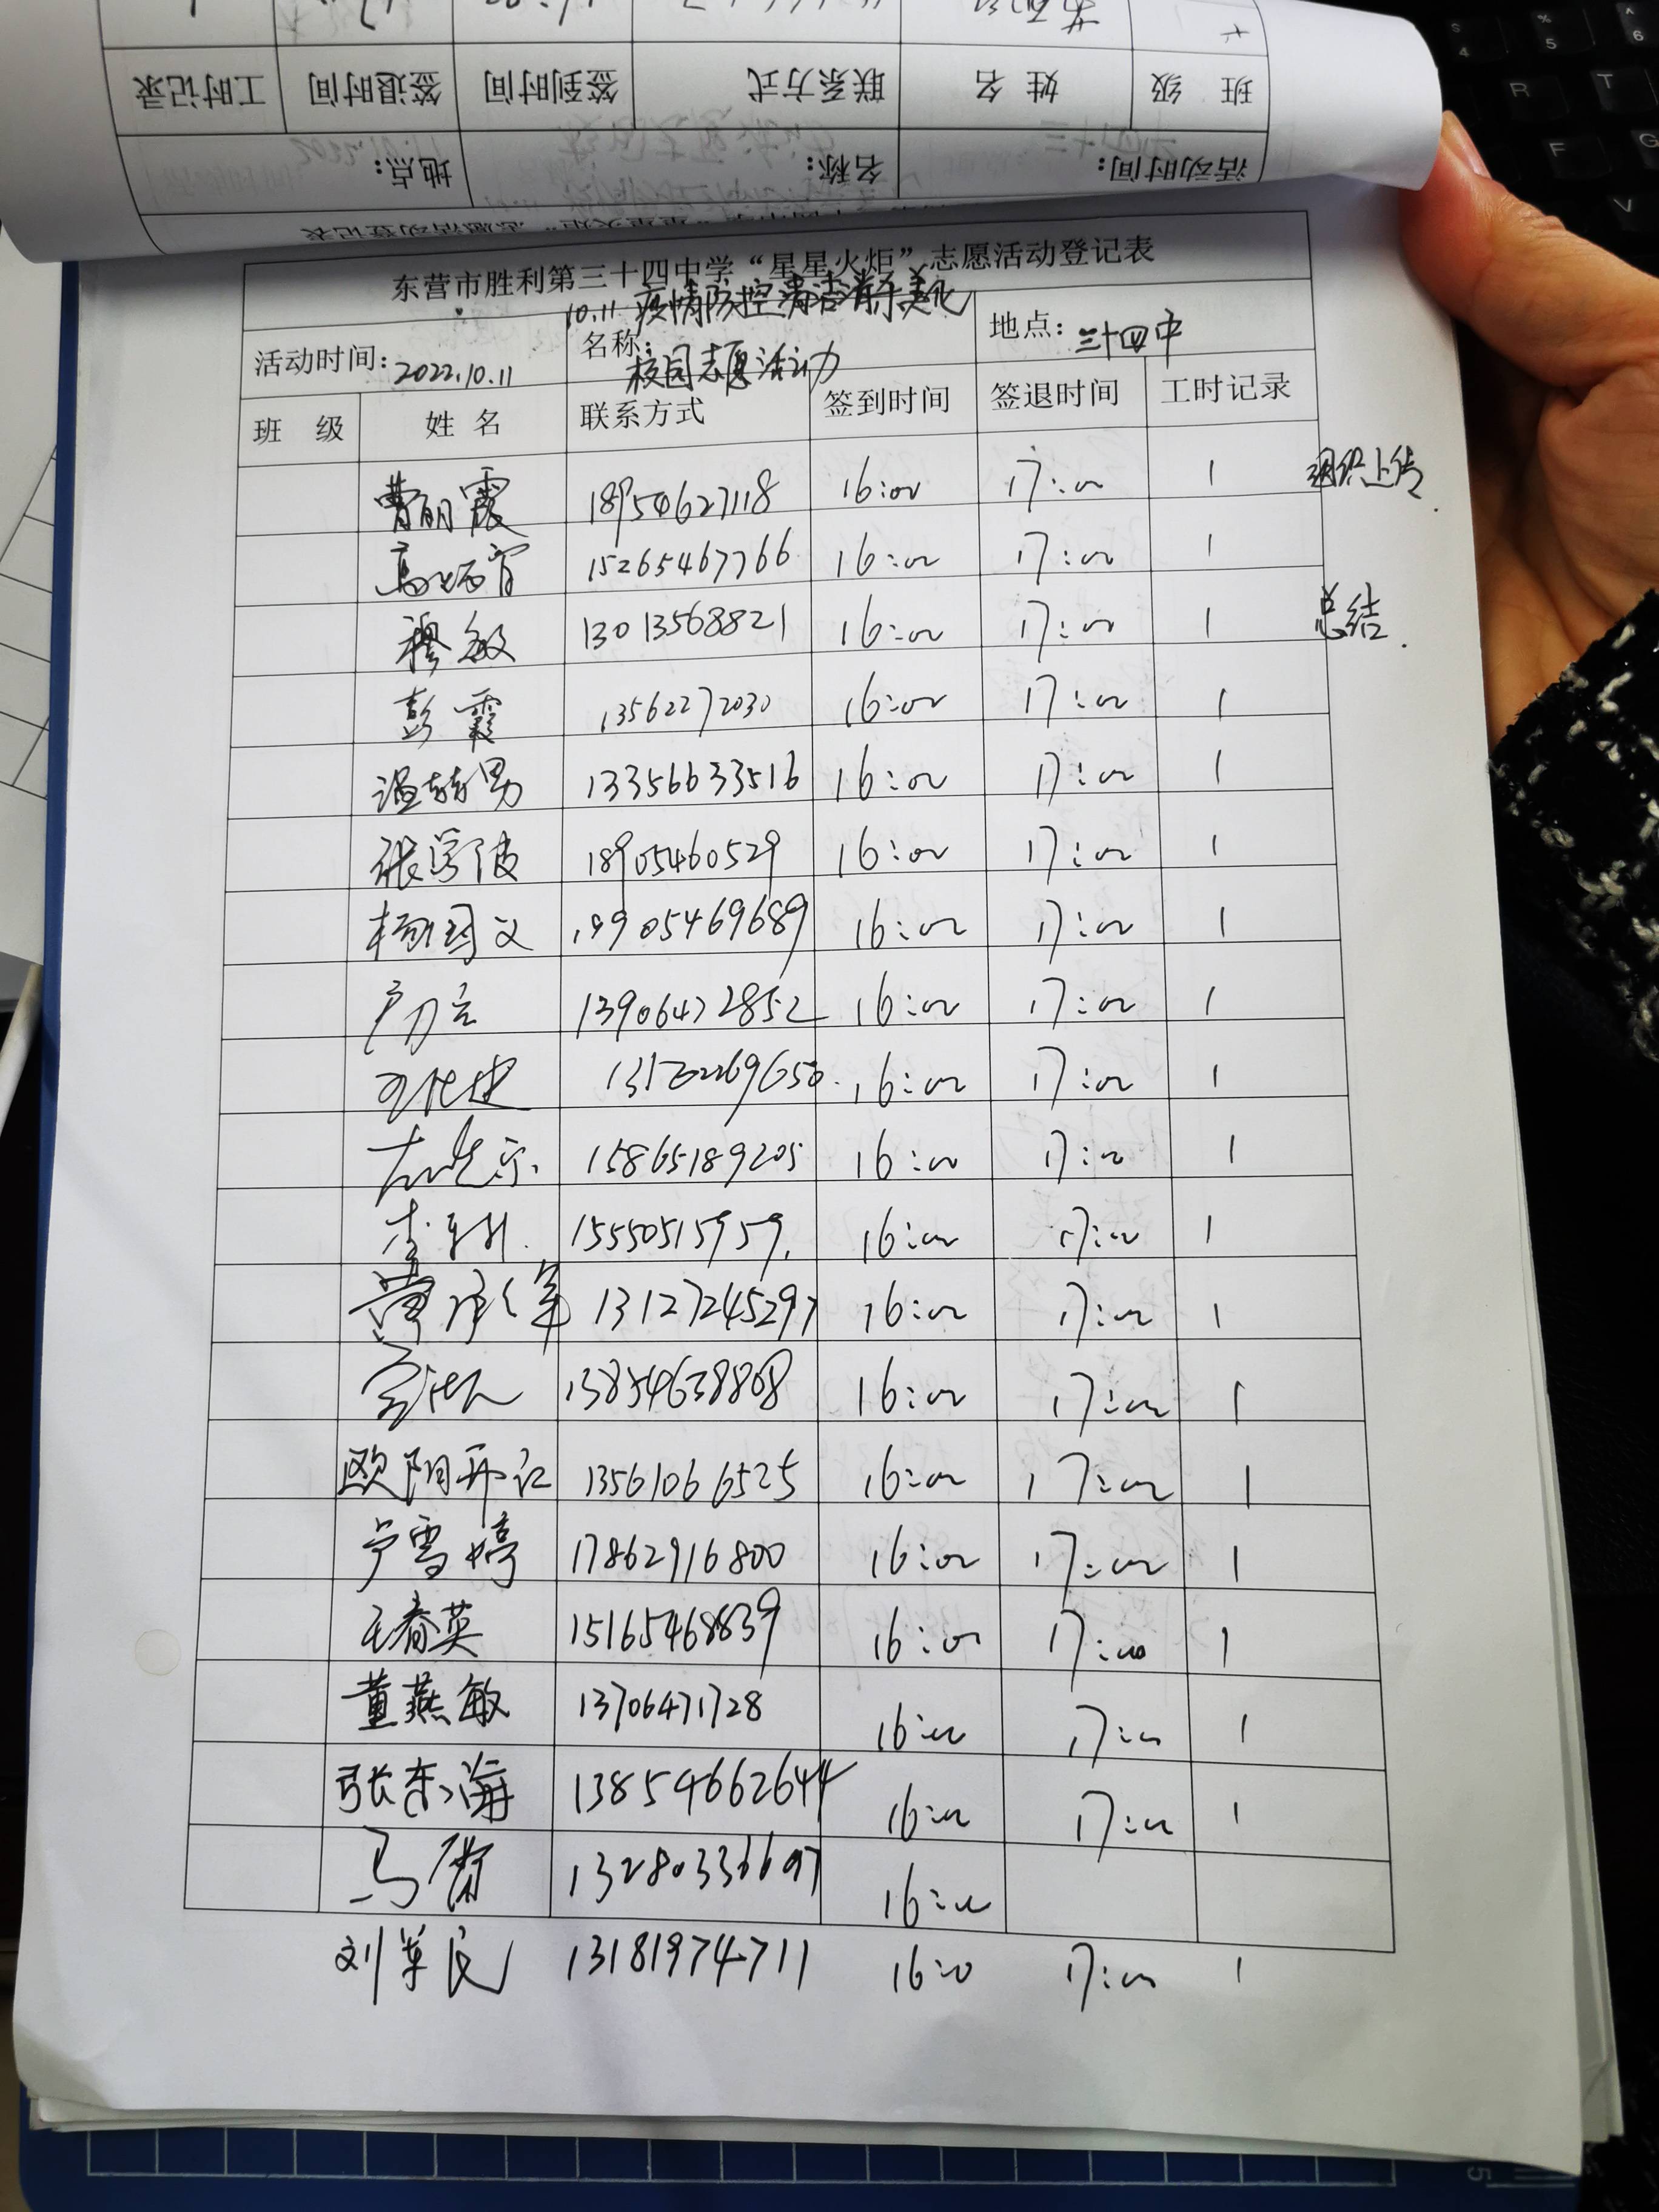 班 级 姓 名 联系方式 签到时间 签退时间 工时记录
活动时间: 名称: 地点:
东营市胜利第三十四中学“星星火炬”志愿活动登记表
活动时间: 2022.10.11 名称: 10.11 疫情防控清洁 美化 校园志愿活动 地点: 三十四中
班 级 姓 名 联系方式 签到时间 签退时间 工时记录
曹丽霞 18954627118 16:00 17:00 1 组织上传
高 15265467766 16:00 17:00 1
穆敏 13013568821 16:00 17:00 1 总结.
彭霞 13562272030 16:00 17:00 1
温 男 13356633516 16:00 17:00 1
张 波 18905460529 16:00 17:00 1
杨 文 19905469689 16:00 17:00 1
13906472852 16:00 17:00 1
16:00 17:00 1
15865189205 16:00 17:00 1
李 15550515959. 16:00 17:00 1
13127245297 16:00 17:00 1
13854638808 16:00 17:00 1
欧阳开江 13561066525 16:00 17:00 1
卢雪婷 17862916800 16:00 17:00 1
王春英 15165468839 16:00 17:00 1
董燕敏 13706471728 16:00 17:00 1
张东海 13854662644 16:00 17:00 1
马 13280336697 16:00
刘军民 13181974711 16:0 17:00 1